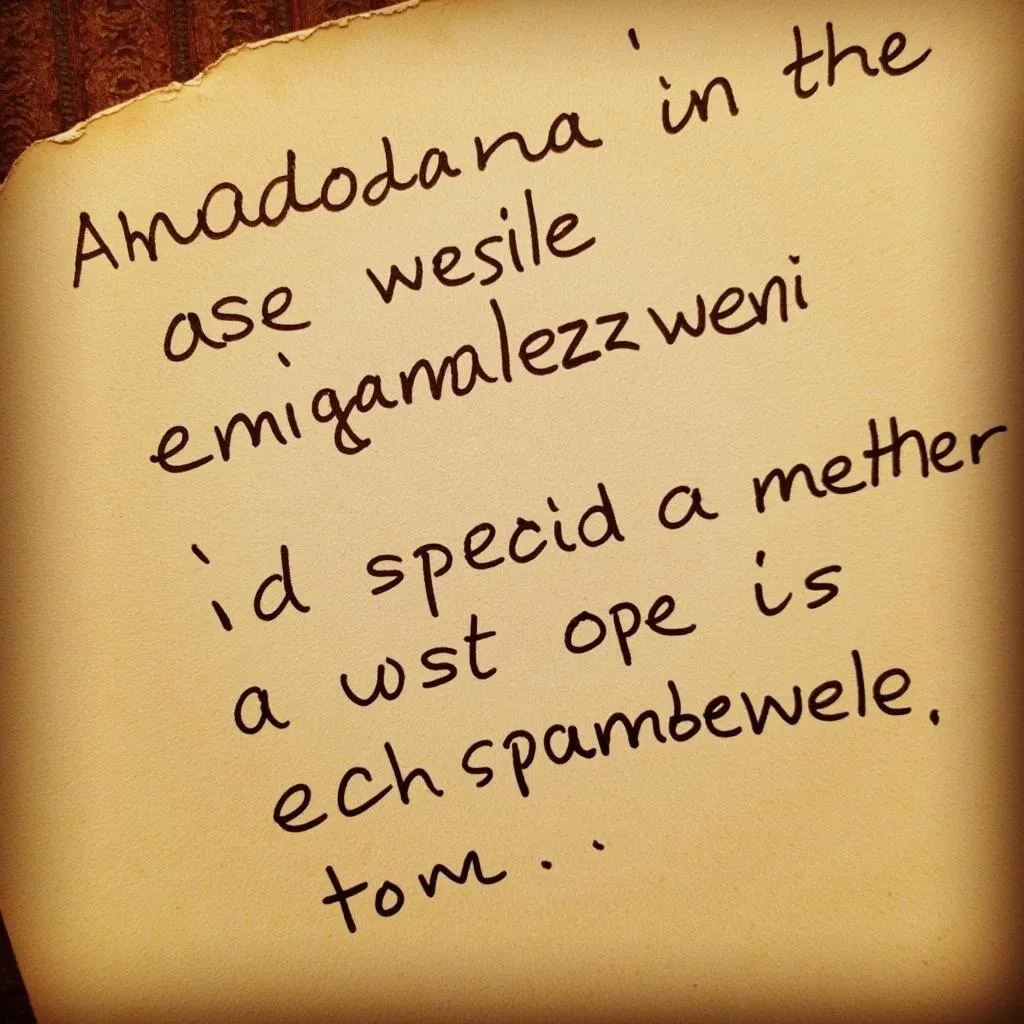 Amadodana in the
ase wesile
emigamalezzweni
id specid a mether
a wst ope is
ech spambewele.
tom..